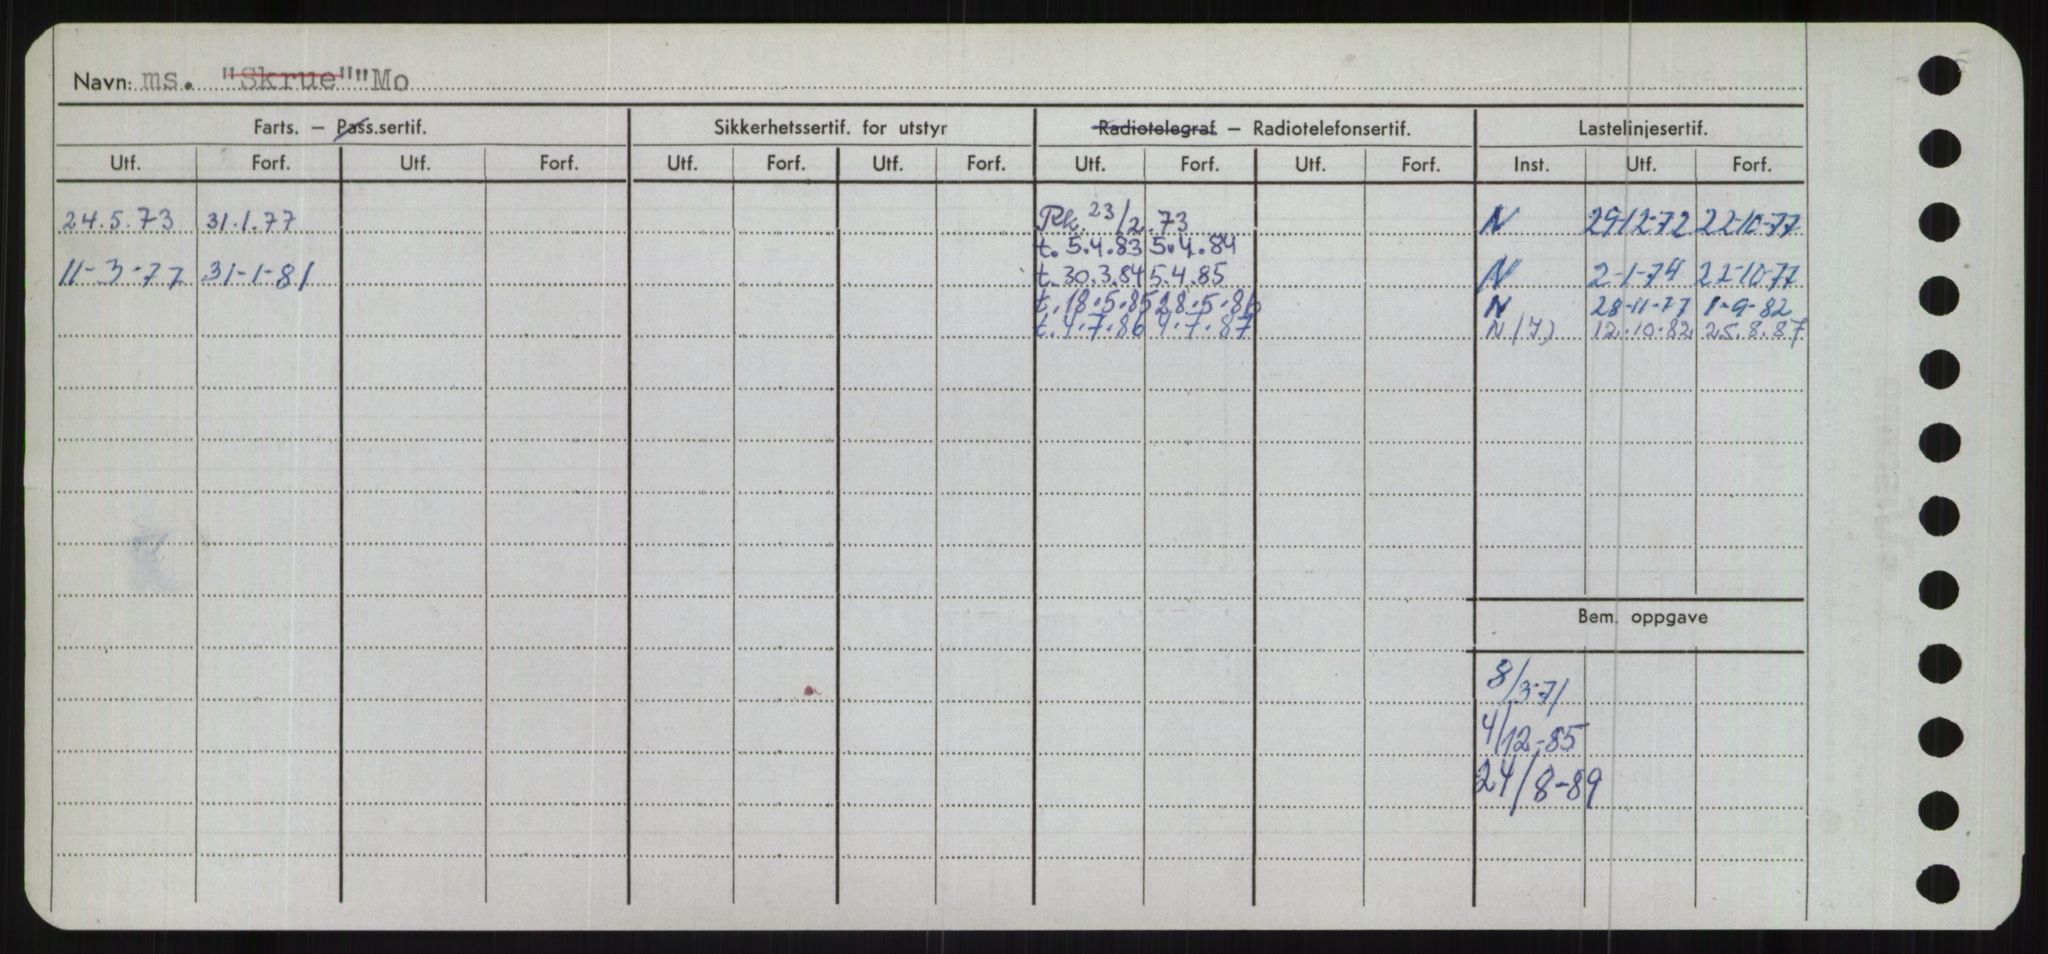 Navn: ms. "Skrue" "Mo
Farts. – Pass.sertif. Sikkerhetssertif. for utstyr Radiotelegraf – Radiotelefonsertif. Lastelinjesertif.
Utf. Forf. Utf. Forf. Utf. Forf. Utf. Forf. Utf. Forf. Utf. Forf. Inst. Utf. Forf.
24.5.73 31.1.77 Rk. 23/2.73 N 29-12-72 22-10-77
t. 5.4.83 5.4.84
11-3-77 31-1-81 t. 30.3.84 5.4.85 N 2-1-74 22-10-77
t. 18.5.85 28.5.86 N 28-11-77 1-9-82
t. 4.7.86 4.7.87 N (7) 12.10.82 25.8.87
Bem. oppgave
8/3-71
4/12-85
24/8-89